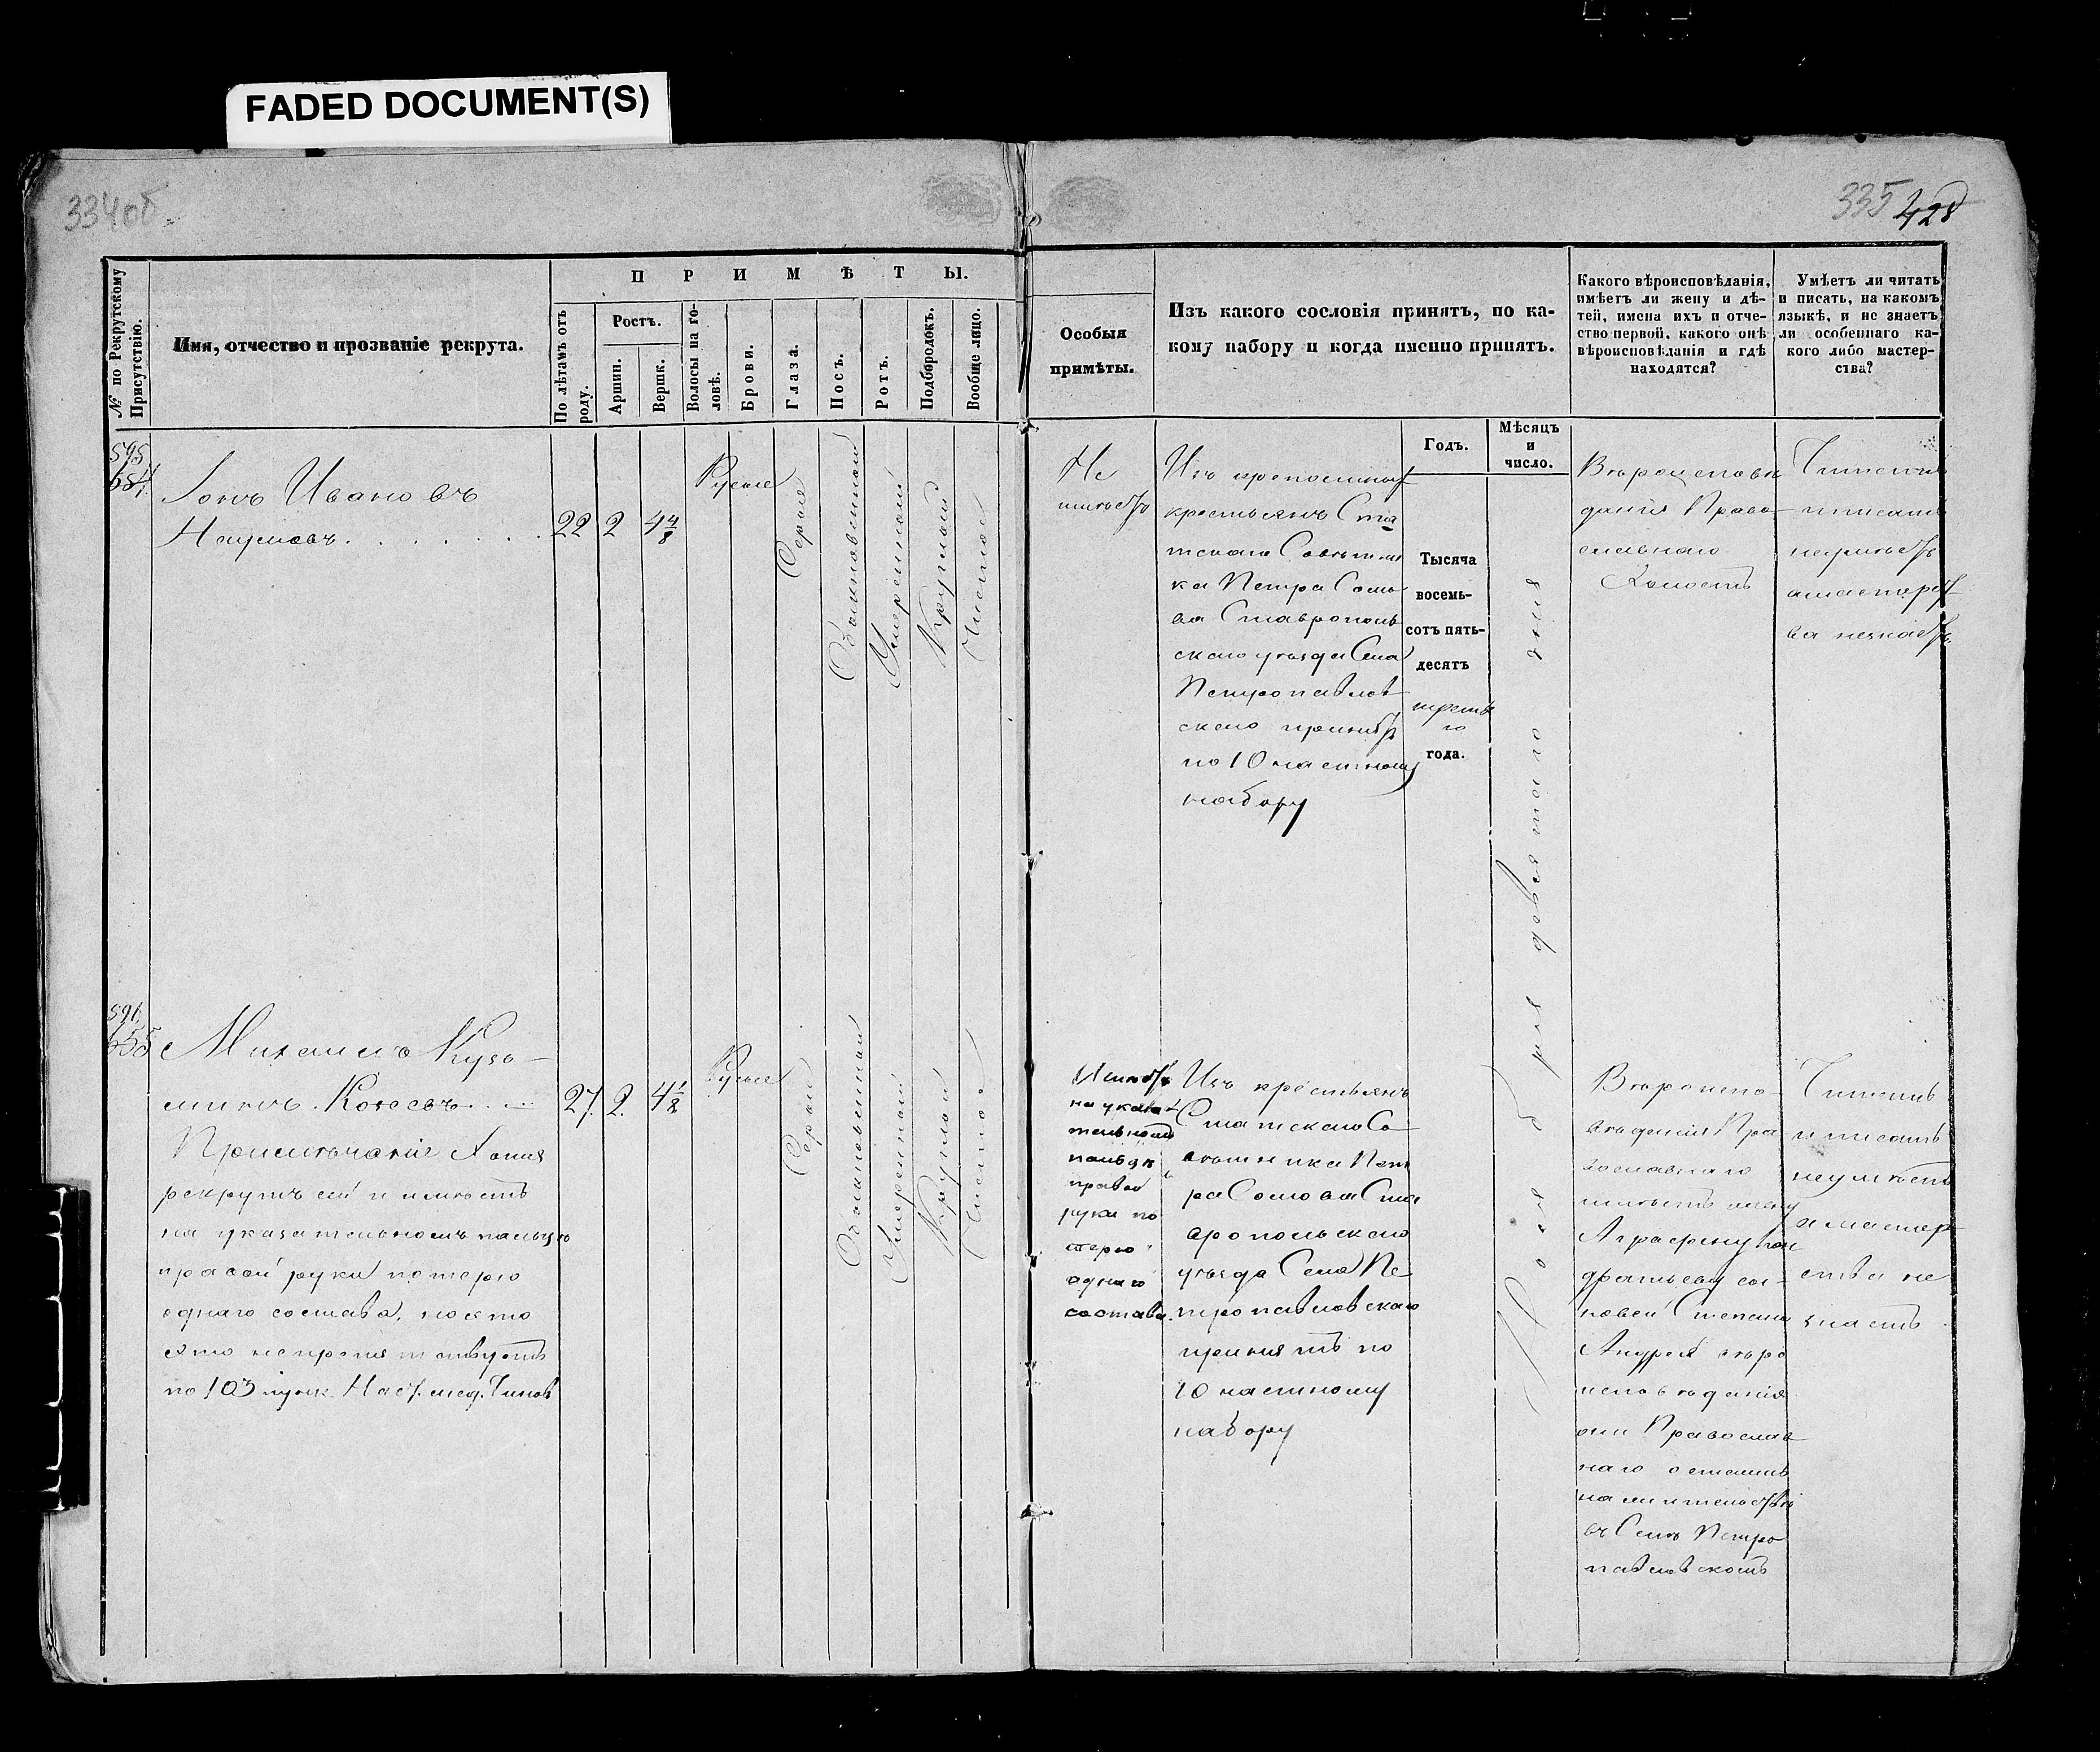 FADED DOCUMENT(S)
334об
335
428
№ по Рекрутскому Присутствію.
Имя, отчество и прозваніе рекрута.
По лѣтамъ отъ роду.
ПРИМѢТЫ.
Ростъ.
Аршин.
Вершк.
Волосы на головѣ.
Брови.
Глаза.
Носъ.
Ротъ.
Подбородокъ.
Вообще лицо.
Особыя
примѣты.
Изъ какого сословія принятъ, по ка-
кому набору и когда именно принятъ.
Годъ.
Мѣсяцъ
и
число.
Какого вѣроисповѣданія,
имѣетъ ли жену и дѣ-
тей, имена ихъ и отче-
ство первой, какого онѣ
вѣроисповѣданія и гдѣ
находятся?
Умѣетъ ли читать
и писать, на какомъ
языкѣ, и не знаетъ
ли особеннаго ка-
кого либо мастер-
ства?
595
Іонъ Ивановъ
Наумовъ
22
2
4 4/8
Русые
Серые
Обыкновенной
Умеренной
Круглой
Чистое
Не
имѣетъ
Изъ крепостныхъ
крестьянъ Ста
тскаго Советни
ка Петра Сомо
ва Ставрополь
скаго уѣзда Села
Петропавлов
скаго принятъ
по 10 частному
набору
Тысяча
восемь-
сотъ пять-
десятъ
третья
го
года.
Ноября девятаго дня
Вѣроисповѣ
данія Право
славнаго
Холостъ
Читать
писать
неумѣетъ
а мастерст
ва незнаетъ
596
655
Михаилъ Кузь-
минъ Козловъ
Примѣчаніе Хотя
рекрутъ сей и имѣетъ
на указательномъ пальцѣ
правой руки потерю
однаго состава, но кто
это непрепятствуетъ
по 103 пунк. Наст. мед. Чинов
27.
2.
4 1/8
Русые
Серой
Обыкновенной
Умеренной
Круглой
Чистое
Имѣетъ
на указа
тельномъ
пальцѣ
правой
руки по
терю
однаго
состава.
Изъ крестьянъ
Статскаго Со
вѣтника Пет
ра Сомова Ста
вропольскаго
уѣзда Села Пе
тропавловскаго
принятъ по
10 частному
набору
Вѣроиспо
вѣданія Пра
вославнаго
имѣетъ жену
Аграфену Кон
дратьеву сы-
новей Степана
Андрея вѣро
исповѣданія
они Православ
наго остались
на жительствѣ
въ Селѣ Петро
павловскомъ
Читать
и писать
неумѣетъ
а мастер
ства не
знаетъ